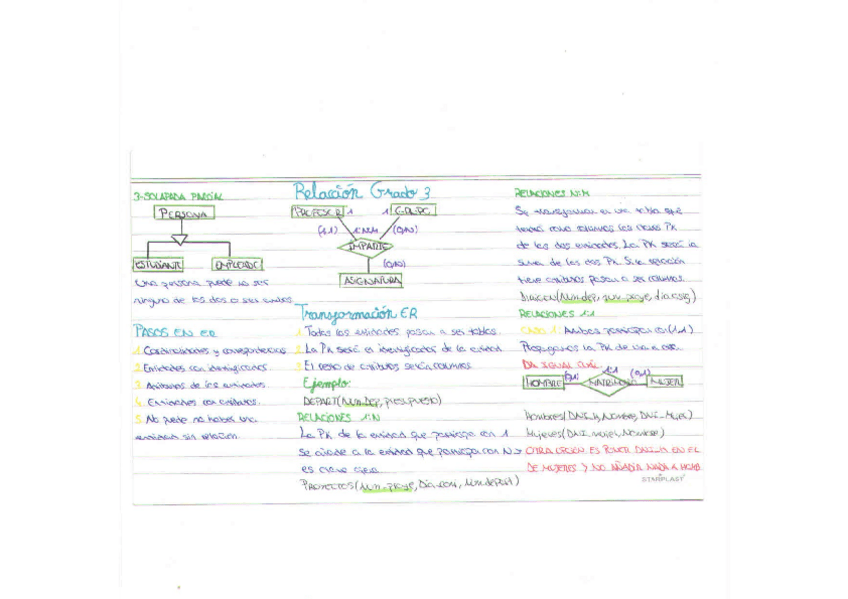 3-SOLAPADA PARCIAL
PERSONA
ESTUDIANTE
EMPLEADO
Una persona puede no ser
ninguno de los dos o ser ambos.
PASOS EN ER
1. Cardinalidades y correspondencias
2. Entidades con identificadores.
3. Atributos de las entidades.
4. Entidades con atributos.
5. No puede no haber una
entidad sin relación.
Relación Grado 3
PROFESOR 1
1 GRUPO
(1,1) 1:N:N (0,N)
IMPARTE
(0,N)
ASIGNATURA
Transformación ER
1. Todas las entidades pasan a ser tablas.
2. La PK será el identificador de la entidad
3. El resto de atributos serán columnas.
Ejemplo:
DEPART(Num-Dep, presupuesto)
RELACIONES 1:N
La PK de la entidad que participa con 1
se añade a la entidad que participa con N
es clave ajena.
PROYECTOS(Num-proye,
RELACIONES N:M
Se transforman en una tabla que
tendrá como columnas las claves PK
de las dos entidades. La PK será la
suma de las dos PK. Si la relación
tiene atributos pasan a ser columnas.
Dirigen(Num.dep, num.proye,
RELACIONES 1:1
CASO 1: Ambas participan con (1,1)
Propagamos la PK de una a otra.
DA IGUAL CUÁL
HOMBRE (0,1) 1:1 MATRIMONIO (0,1) MUJER
Hombres(DNI_H, Nombre, DNI-Mujer)
Mujeres(DNI_mujer, Nombre)
OTRA OPCIÓN ES PONER DNI_H EN EL
DE MUJERES Y NO AÑADIR NADA A HOMB
STARPLAST